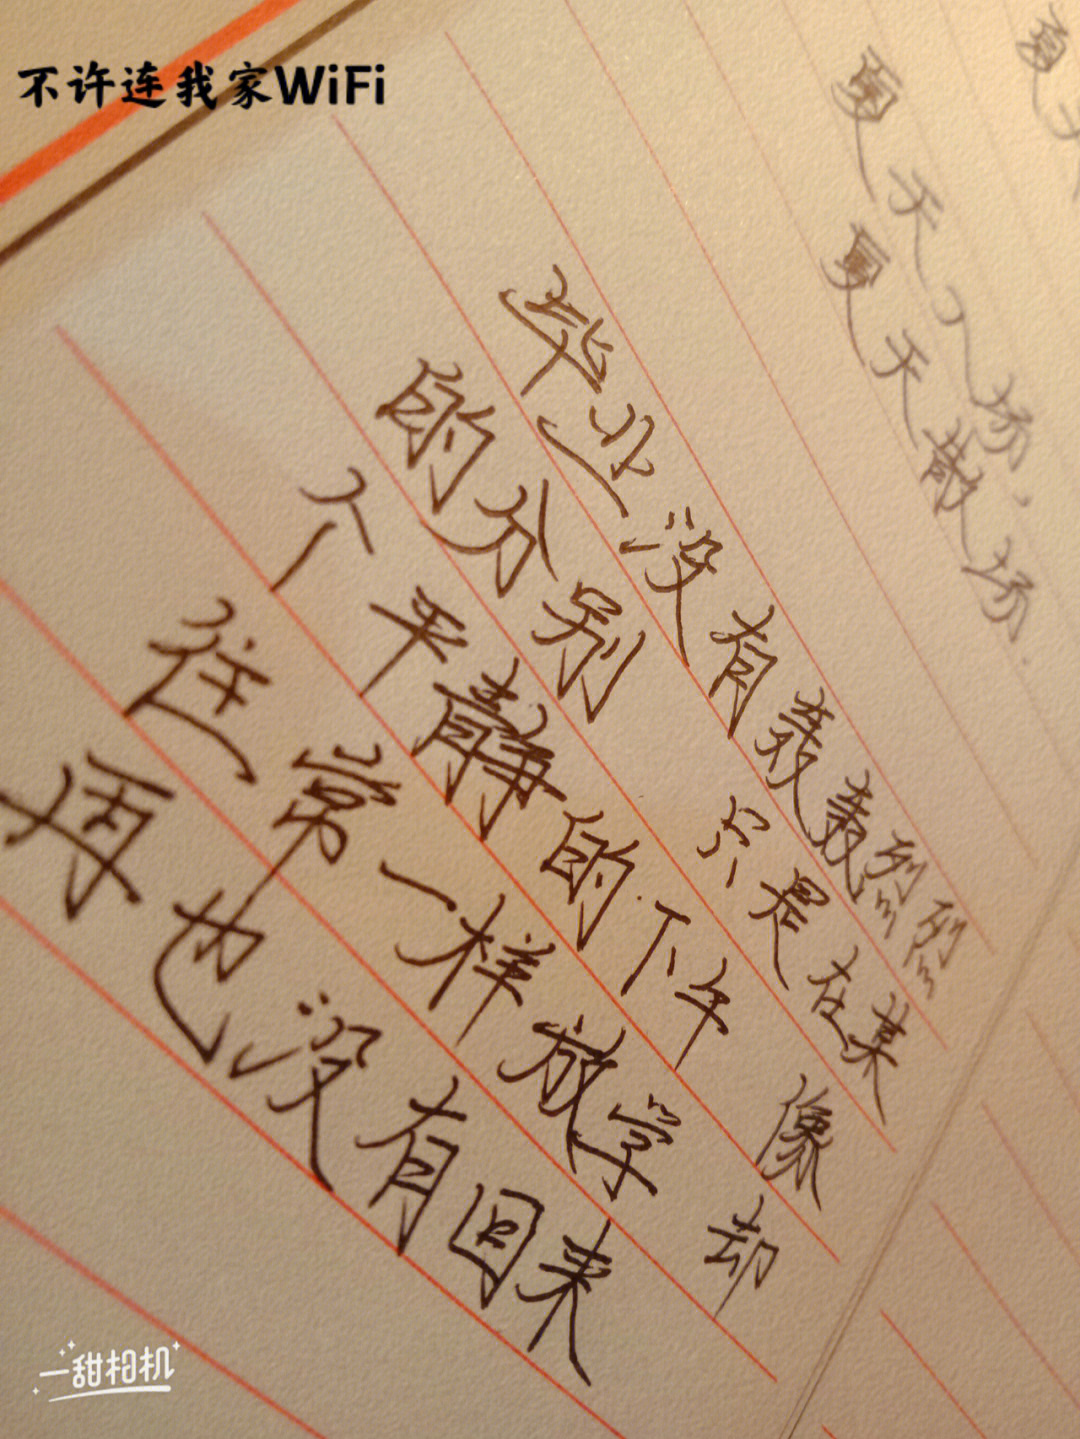 不许连我家WiFi
夏
夏天入场，
夏天散场.
毕业没有轰轰烈烈
的分别 只是在某
个平静的下午 像
往常一样放学 却
再也没有回来
一甜相机